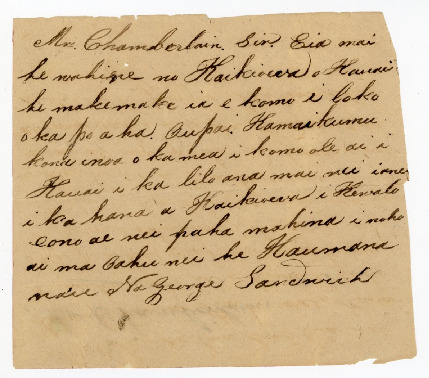 Mr. Chamberlain. Sir. Eia mai
he wahine no Kaikioewa o Kauai
he makemake ia e komo i loko
o ka po aha. Oupai. Kamaikumu
kona inoa o ka mea i komo ole ai i
Kauai i ka lilo ana mai nei ianei
i ka hana a Kaikioewa i Kewalo
eono ae nei paha mahina i noho
ai ma Oahu nei he Kaumana
na'u Na George Sandwich